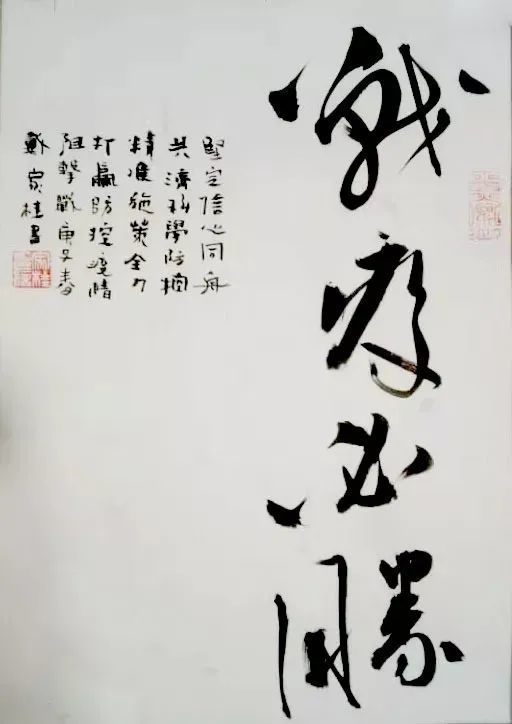 戰疫必勝
堅定信心同舟
共濟科學防控
精準施策全力
打贏防控疫情
阻擊戰庚子春
戴家桂書